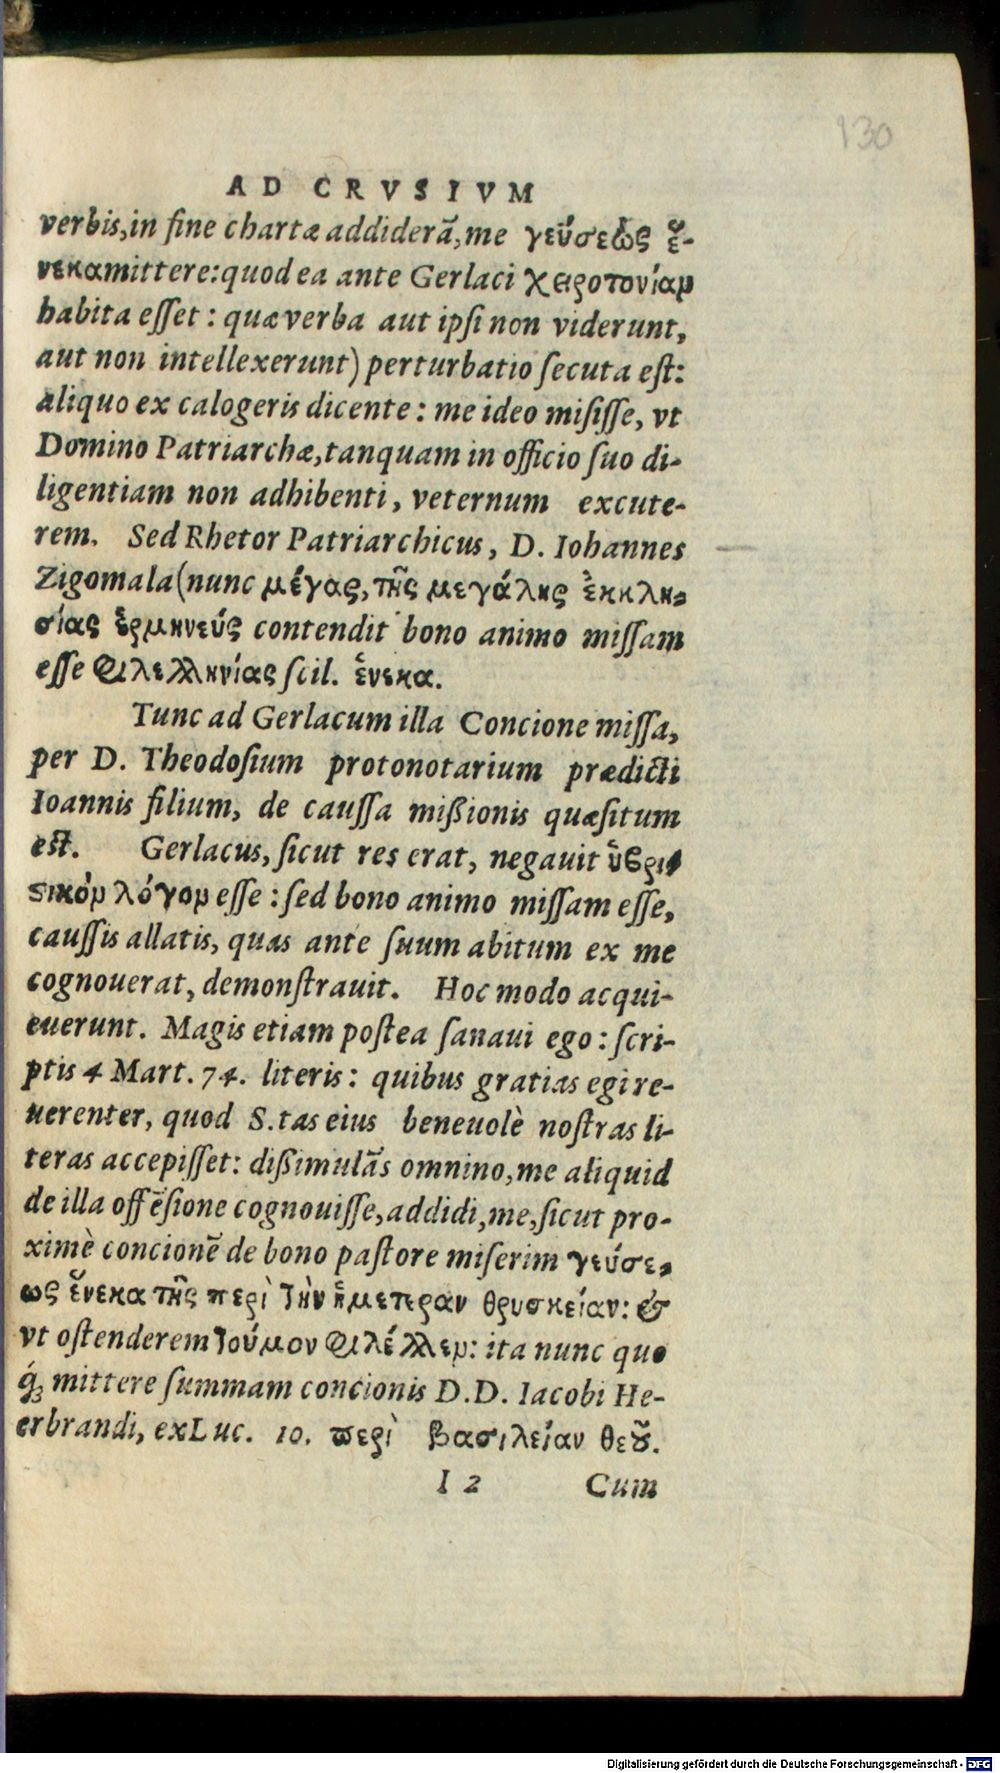 130
AD CRVSIVM
verbis, in fine chartæ addiderã, me γεύσεως ἕ-
νεκα mittere: quod ea ante Gerlaci χειροτονίαν
habita esset: quæ verba aut ipsi non viderunt,
aut non intellexerunt) perturbatio secuta est:
aliquo ex calogeris dicente: me ideo misisse, vt
Domino Patriarchæ, tanquam in officio suo di-
ligentiam non adhibenti, veternum excute-
rem. Sed Rhetor Patriarchicus, D. Iohannes
Zigomala (nunc μέγας, τῆς μεγάλης ἐκκλη-
σίας ἑρμηνεύς contendit bono animo missam
esse Φιλελληνίας scil. ἕνεκα.
Tunc ad Gerlacum illa Concione missa,
per D. Theodosium protonotarium prædicti
Ioannis filium, de caussa mißionis quæsitum
est. Gerlacus, sicut res erat, negauit ὑβρι-
στικόν λόγον esse: sed bono animo missam esse,
caussis allatis, quas ante suum abitum ex me
cognouerat, demonstrauit. Hoc modo acqui-
euerunt. Magis etiam postea sanaui ego: scri-
ptis 4 Mart. 74. literis: quibus gratias egi re-
uerenter, quod S. tas eius beneuolè nostras li-
teras accepisset: dißimulãs omnino, me aliquid
de illa offẽsione cognouisse, addidi, me, sicut pro-
ximè concionẽ de bono pastore miserim γεύσε-
ως ἕνεκα τῆς περὶ τὴν ἡμετέραν θρυσκείαν: &
vt ostenderem τοὐμον Φιλέλλεν: ita nunc quo
q́ꝫ mittere summam concionis D. D. Iacobi He-
erbrandi, ex Luc. 10. περὶ βασιλείαν θεοῦ.
I 2 Cum
Digitalisierung gefördert durch die Deutsche Forschungsgemeinschaft - DFG